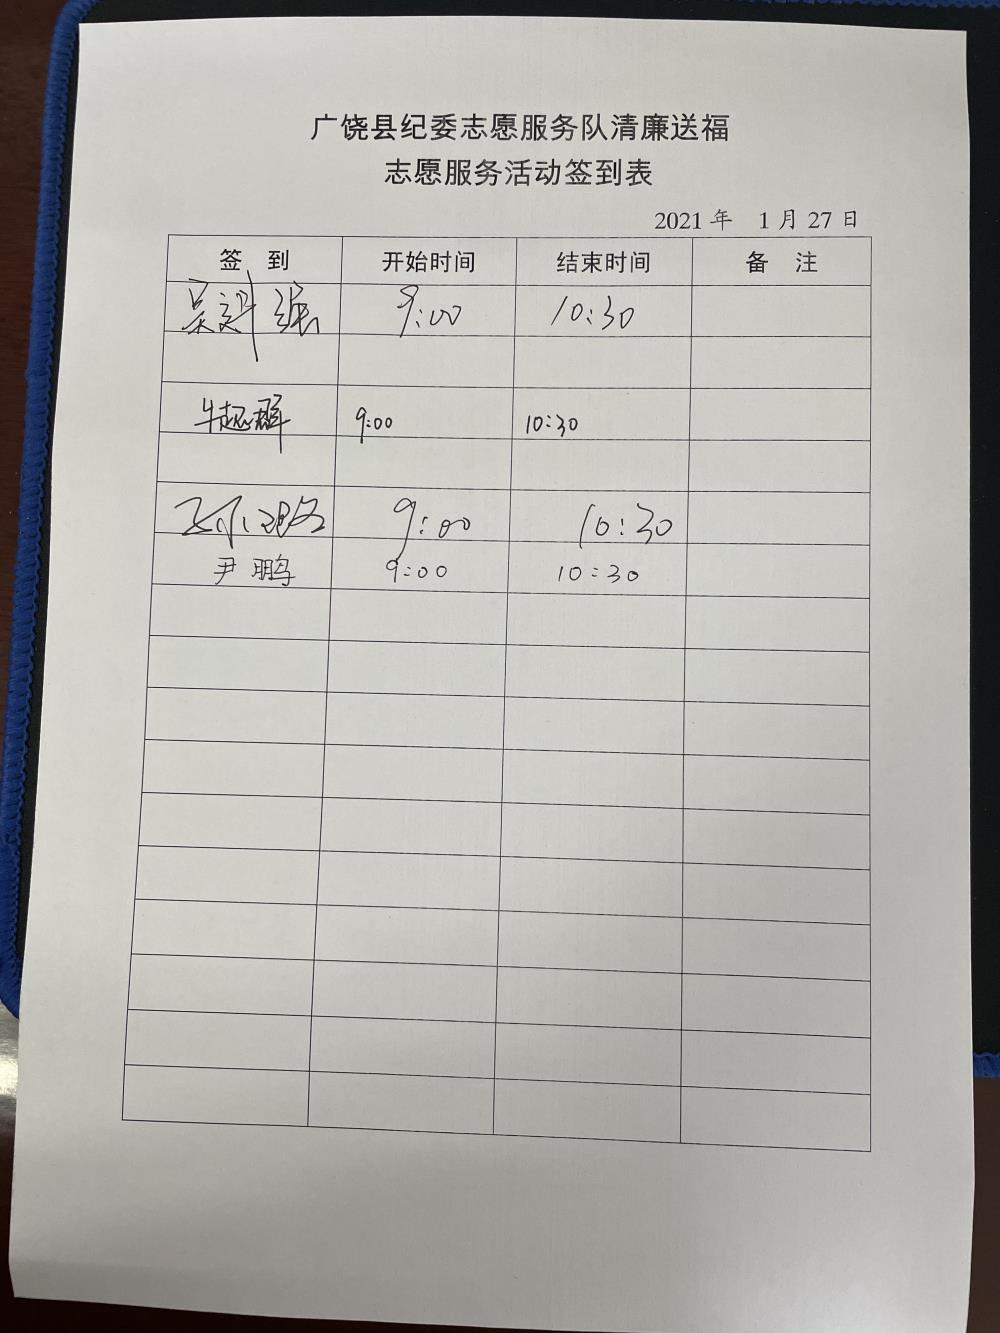 广饶县纪委志愿服务队清廉送福
志愿服务活动签到表
2021 年 1 月 27 日
签 到 开始时间 结束时间 备 注
吴 9:00 10:30
牛起群 9:00 10:30
9:00 10:30
尹鹏 9:00 10:30